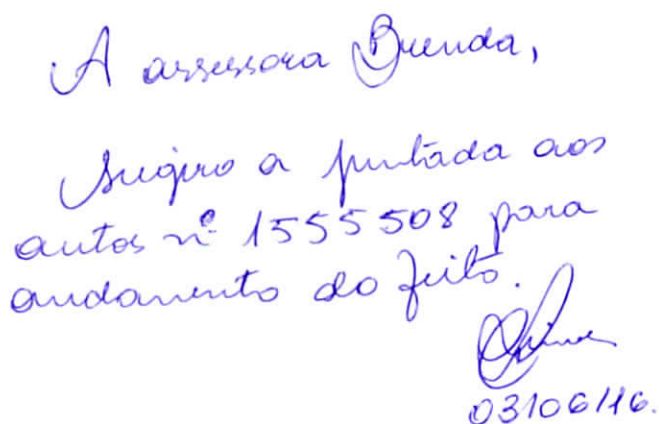 A assessora Brenda,
Sugiro a juntada aos
autos nº 1555508 para
andamento do feito.
03/06/16.